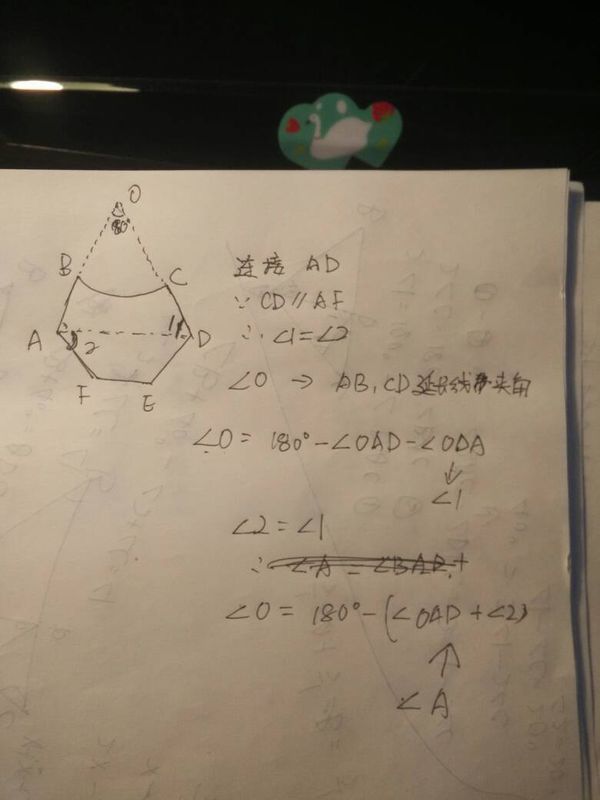 O
80°
B
C
A
1
D
2
F
E
连接 AD
∵ CD // AF
∴ ∠1=∠2
∠O → AB, CD 延长线夹角
∠O = 180° - ∠OAD - ∠ODA
↓
∠1
∠2 = ∠1
∴ ∠A = ∠BAD +
∠O = 180° - (∠OAD + ∠2)
↑
∠A